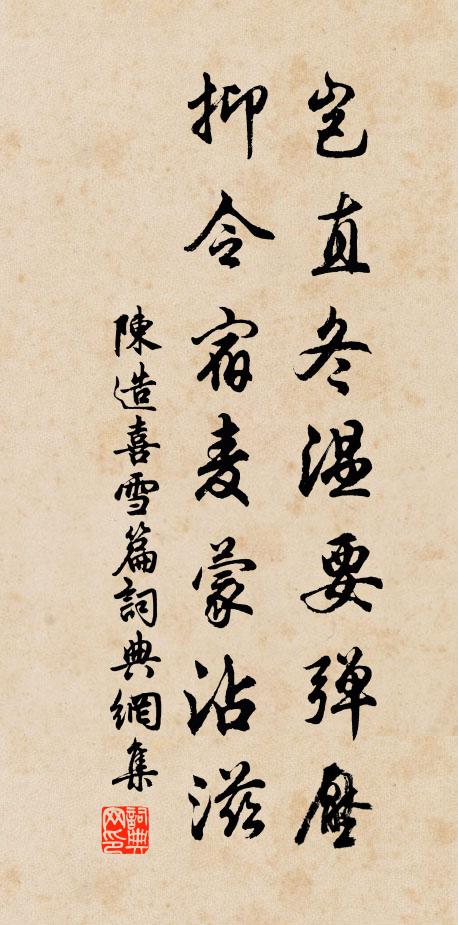 豈直冬温要弹壓
抑令宿麦蒙沾滋
陳造喜雪篇詞典網集
詞典網印